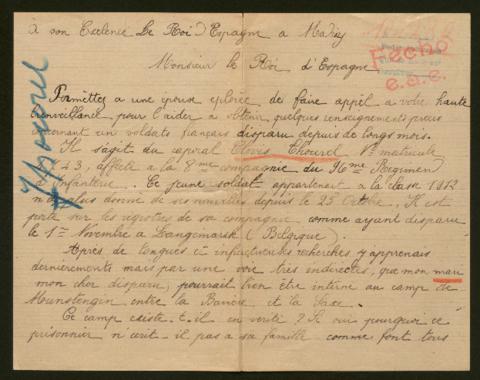 à son Exelence Le Roi d'Espagne a Madrid
Fecho
Monsieur le Roi d'Espagne
Thourel
Permettez a une epouse eplorée de faire appel a votre haute
bienveillance pour l'aider a obtenir quelques renseignements precis
concernant un soldats français disparu depuis de longs mois.
Il s'agit du caporal Clovis Thourel No matricule
43, affecté a la 8me compagnie du 96me Regiment
d'Infanterie. Ce jeune soldat appartenant a la classe 1912
n'a plus donné de ses nouvelles depuis le 25 Octbre. Il est
porté sur les registres de sa compagnie comme ayant disparu
le 1er Novembre a Langemarck (Belgique).
Apres de longues et infructueuses recherches j'apprenais
dernièrements mais par une voie très indirectes, que mon mari
mon cher disparu, pourrait bien être interné au camp de
Munstengen entre la Baviere et la Saxe.
Ce camp existe-t-il en verité? Si oui pourquoi ce
prisonnier n'ecrit-il pas a sa famille comme font tous